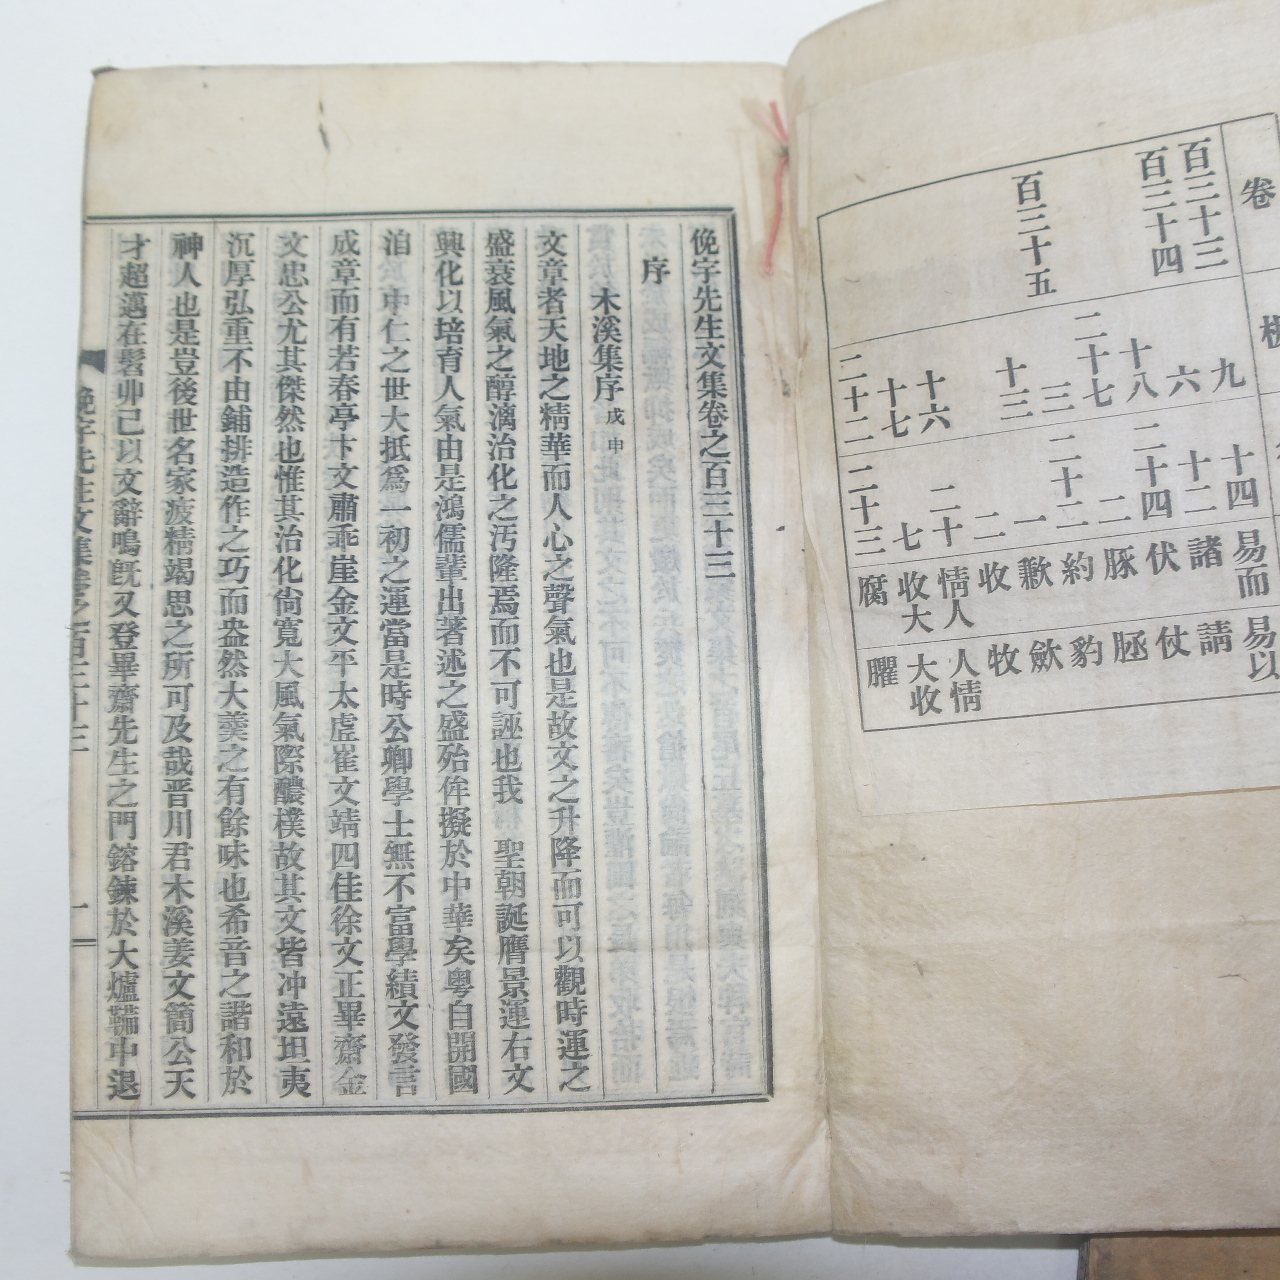 卷
百三十三 九 十四 易而 易以
百三十四 六 十二 諸 請
十八 二十四 伏 仗
二十七 二 豚
三 二十二 約 豹
百三十五 十三 一 歉 歛
二 收 牧
十六 二十 情人 人情
十七 七 收大 大收
二十二 二十三 腐 臞
俛宇先生文集卷之百三十三
序
木溪集序 戊申
文章者天地之精華而人心之聲氣也是故文之升降而可以觀時運之
盛衰風氣之醇漓治化之汚隆焉而不可誣也我 聖朝誕膺景運右文
興化以培育人氣由是鴻儒輩出著述之盛殆侔擬於中華矣粤自開國
洎 中仁之世大抵爲一初之運當是時公卿學士無不富學績文發言
成章而有若春亭卞文肅乖崖金文平太虛崔文靖四佳徐文正畢齋金
文忠公尤其傑然也惟其治化尙寬大風氣際醲樸故其文皆冲遠坦夷
沉厚弘重不由鋪排造作之巧而盎然大羹之有餘味也希音之諧和於
神人也是豈後世名家疲精竭思之所可及哉晋川君木溪姜文簡公天
才超邁在髫丱已以文辭鳴旣又登畢齋先生之門鎔鍊於大爐鞴中退
俛宇先生文集卷之百三十三 一